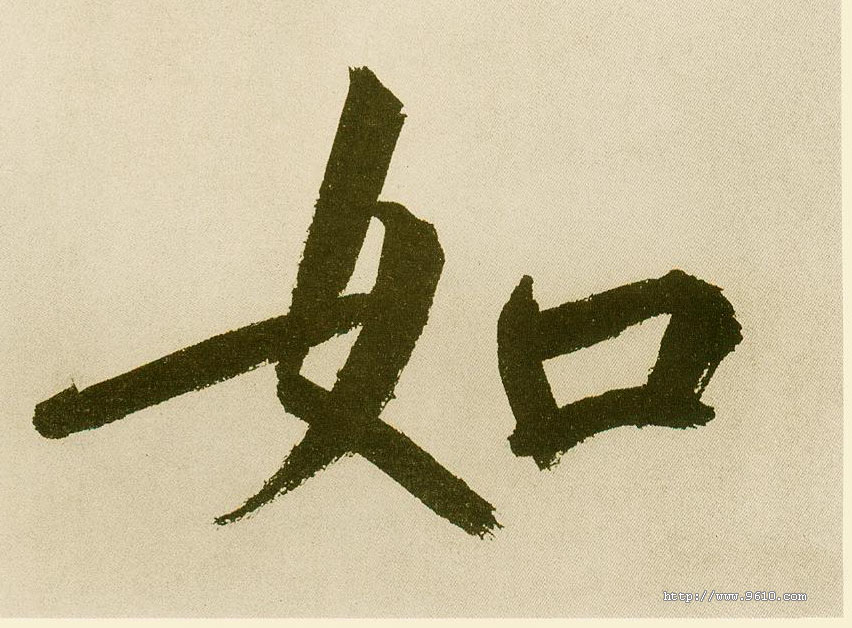 如
http://www.9610.com